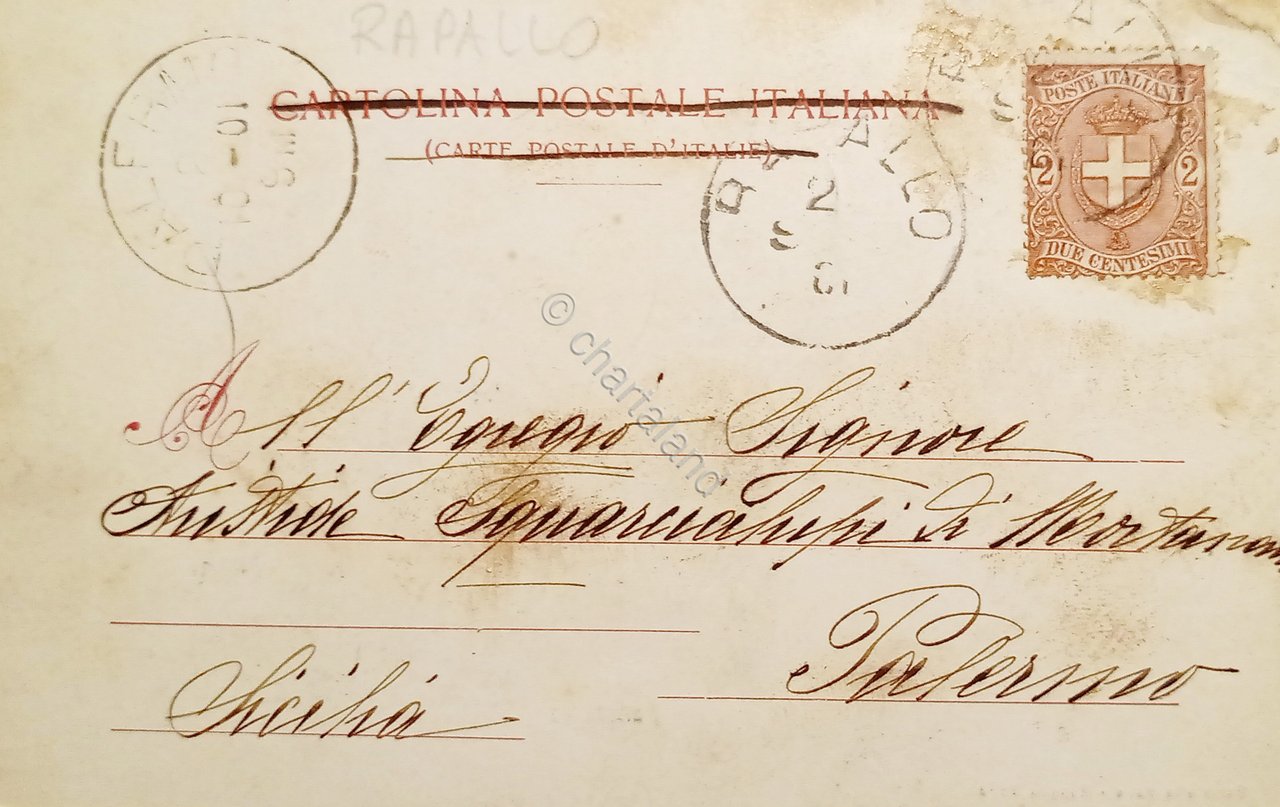 RAPALLO
CARTOLINA POSTALE ITALIANA
(CARTE POSTALE D'ITALIE)
POSTE ITALIANE
2 2
DUE CENTESIMI
RAPALLO
2
01
10-01
© chartaland
All' Egregio Signore
Aristide Squarcialupi di
Palermo
Sicilia